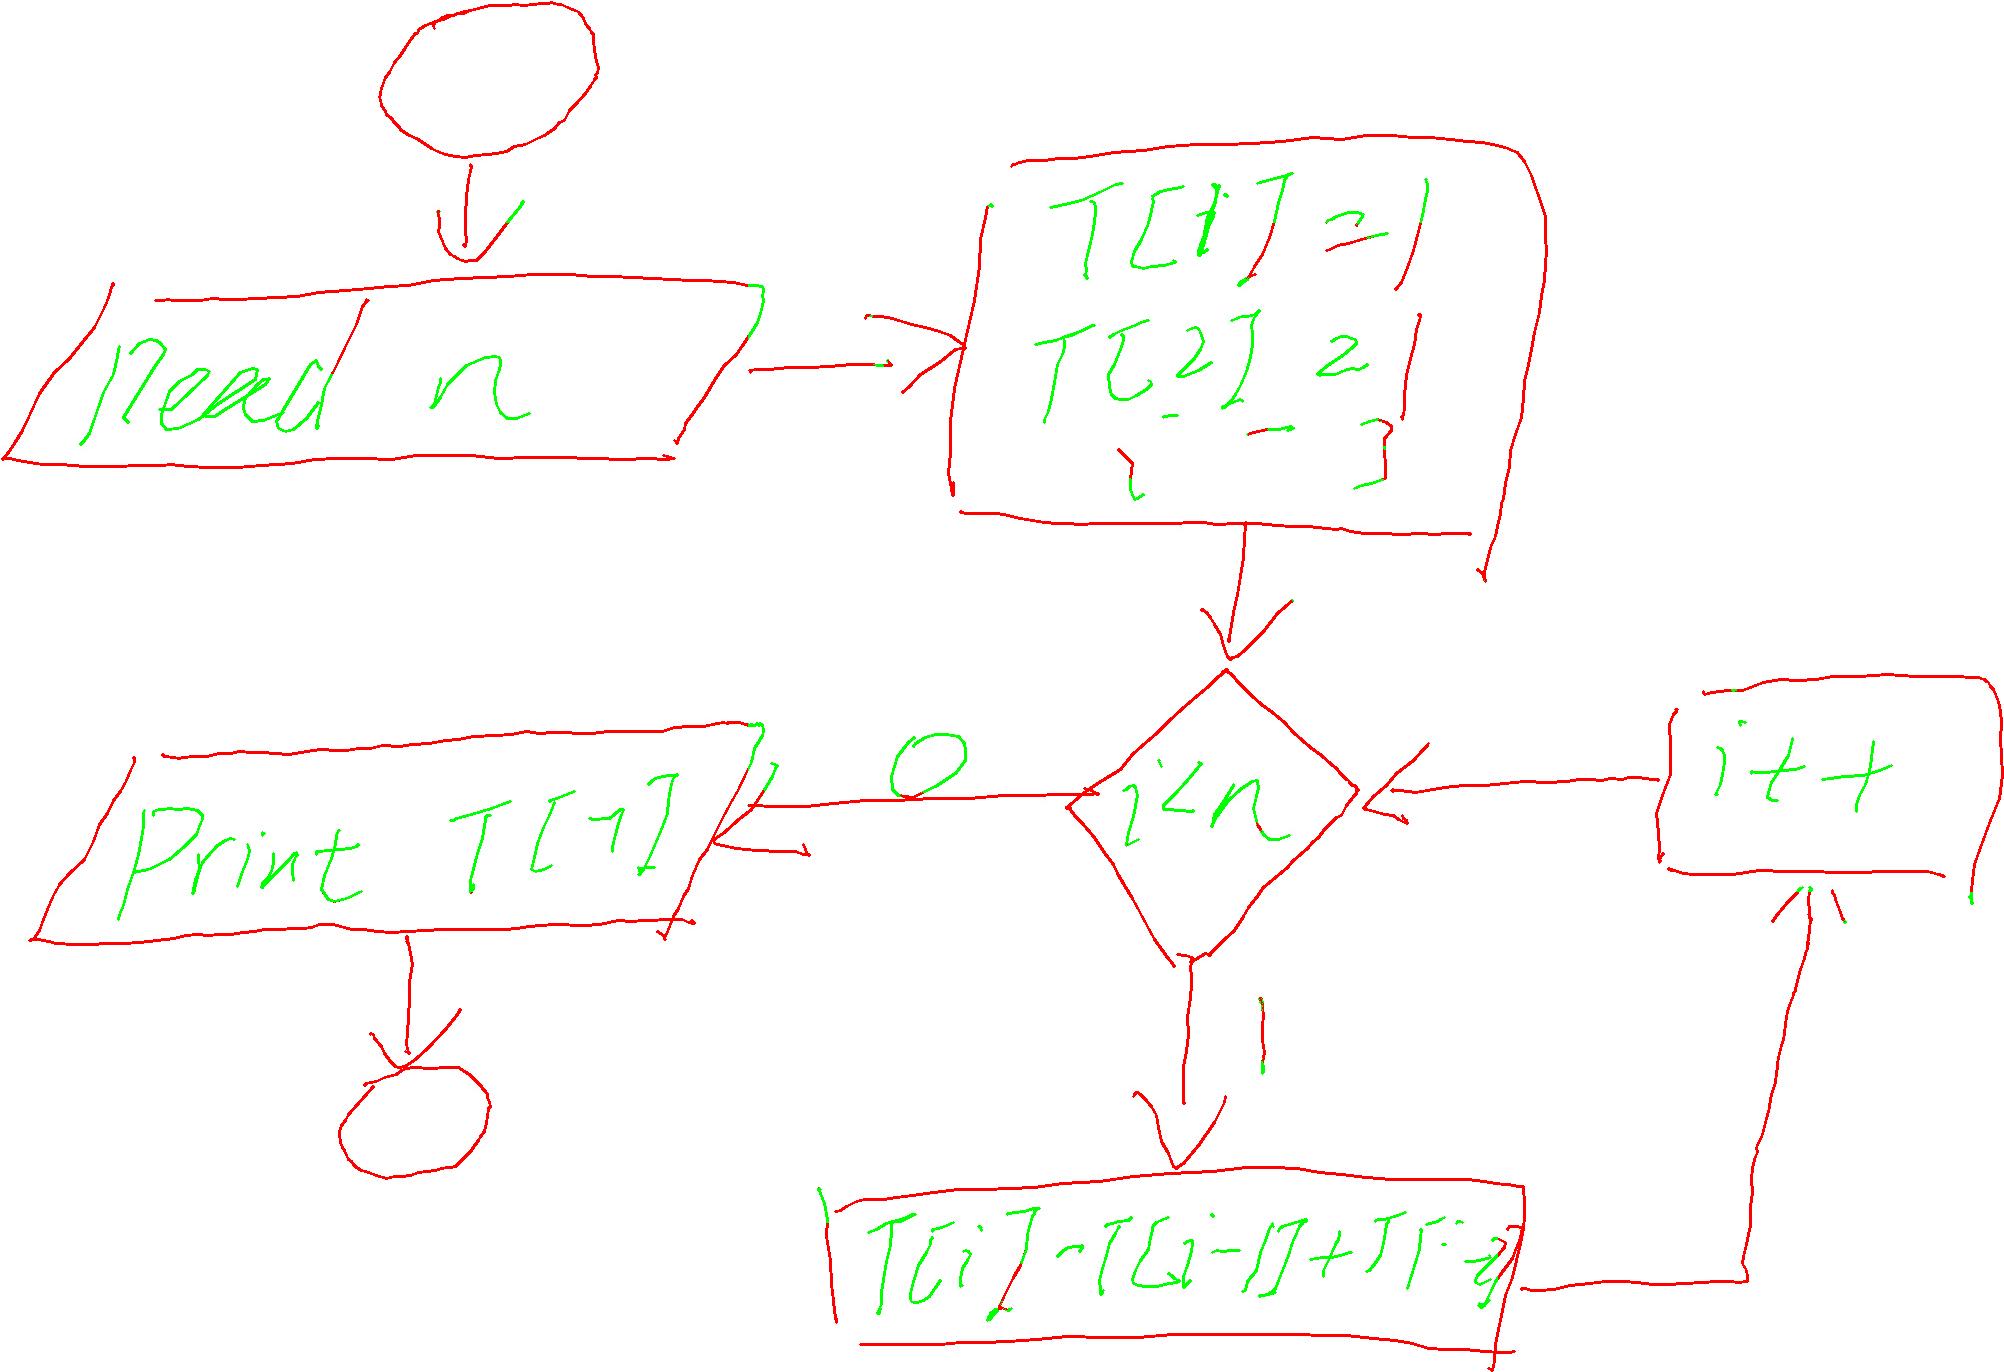 Read n
T[1] = 1
T[2] = 1
i = 3
i<n
0
i++
Print T[n]
1
T[i] = T[i-1]+T[i-2]